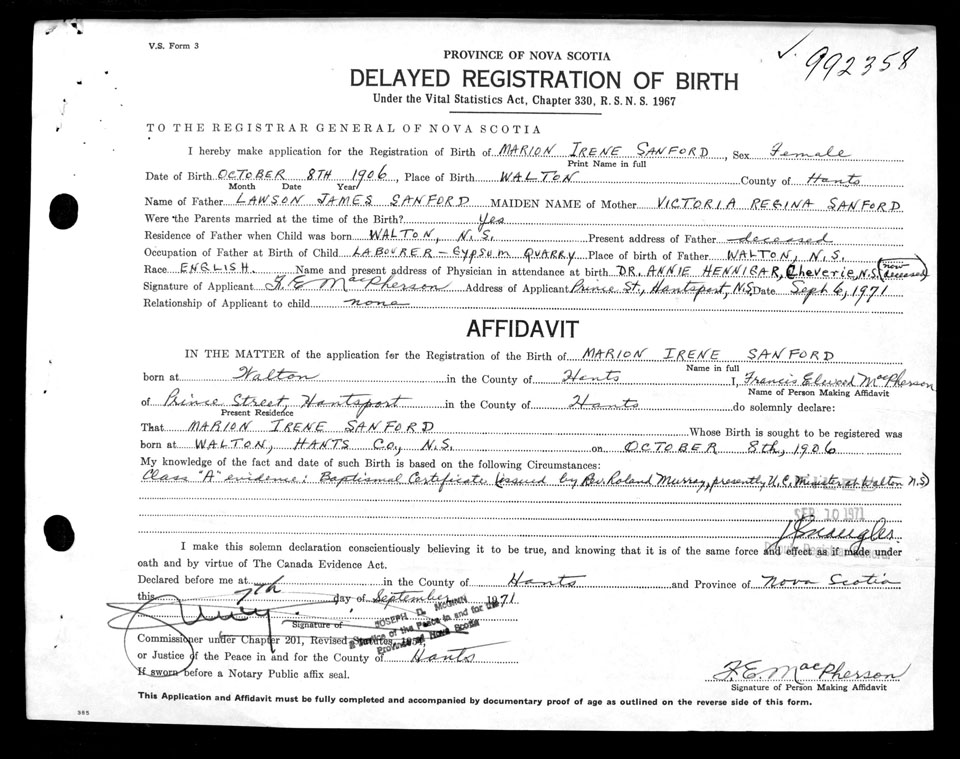 V.S. Form 3
✓. 992358
PROVINCE OF NOVA SCOTIA
DELAYED REGISTRATION OF BIRTH
Under the Vital Statistics Act, Chapter 330, R. S. N. S. 1967
TO THE REGISTRAR GENERAL OF NOVA SCOTIA
I hereby make application for the Registration of Birth of MARION IRENE SANFORD, Sex Female
Print Name in full
Date of Birth OCTOBER 8TH 1906, Place of Birth WALTON County of Hants
Month Date Year
Name of Father LAWSON JAMES SANFORD MAIDEN NAME of Mother VICTORIA REGINA SANFORD
Were the Parents married at the time of the Birth? Yes
Residence of Father when Child was born WALTON, N.S. Present address of Father deceased
Occupation of Father at Birth of Child LABOURER - Gypsum QUARRY Place of birth of Father WALTON, N.S.
Race ENGLISH. Name and present address of Physician in attendance at birth DR. ANNIE HENNIGAR, Cheverie, N.S. (now deceased)
Signature of Applicant F. E. MacPherson Address of Applicant Prince St., Hantsport, N.S. Date Sept 6, 1971
Relationship of Applicant to child none
AFFIDAVIT
IN THE MATTER of the application for the Registration of the Birth of MARION IRENE SANFORD
Name in full
born at Walton in the County of Hants I, Francis Elwood MacPherson
Name of Person Making Affidavit
of Prince Street, Hantsport in the County of Hants do solemnly declare:
Present Residence
That MARION IRENE SANFORD Whose Birth is sought to be registered was
born at WALTON, HANTS Co., N.S. on OCTOBER 8th, 1906
My knowledge of the fact and date of such Birth is based on the following Circumstances:
Class "A" evidence: Baptismal Certificate (issued by Rev. Roland Murray, presently U.C. Minister at Walton N.S)
SEP 10 1971
I make this solemn declaration conscientiously believing it to be true, and knowing that it is of the same force and effect as if made under
oath and by virtue of The Canada Evidence Act.
Declared before me at in the County of Hants and Province of Nova Scotia
this 7th day of September 1971
Signature of
JOSEPH D. McGINN
A Justice of the Peace in and for the
Province of Nova Scotia
Commissioner under Chapter 201, Revised Statutes, 1954,
or Justice of the Peace in and for the County of Hants
If sworn before a Notary Public affix seal.
F. E. MacPherson
Signature of Person Making Affidavit
This Application and Affidavit must be fully completed and accompanied by documentary proof of age as outlined on the reverse side of this form.